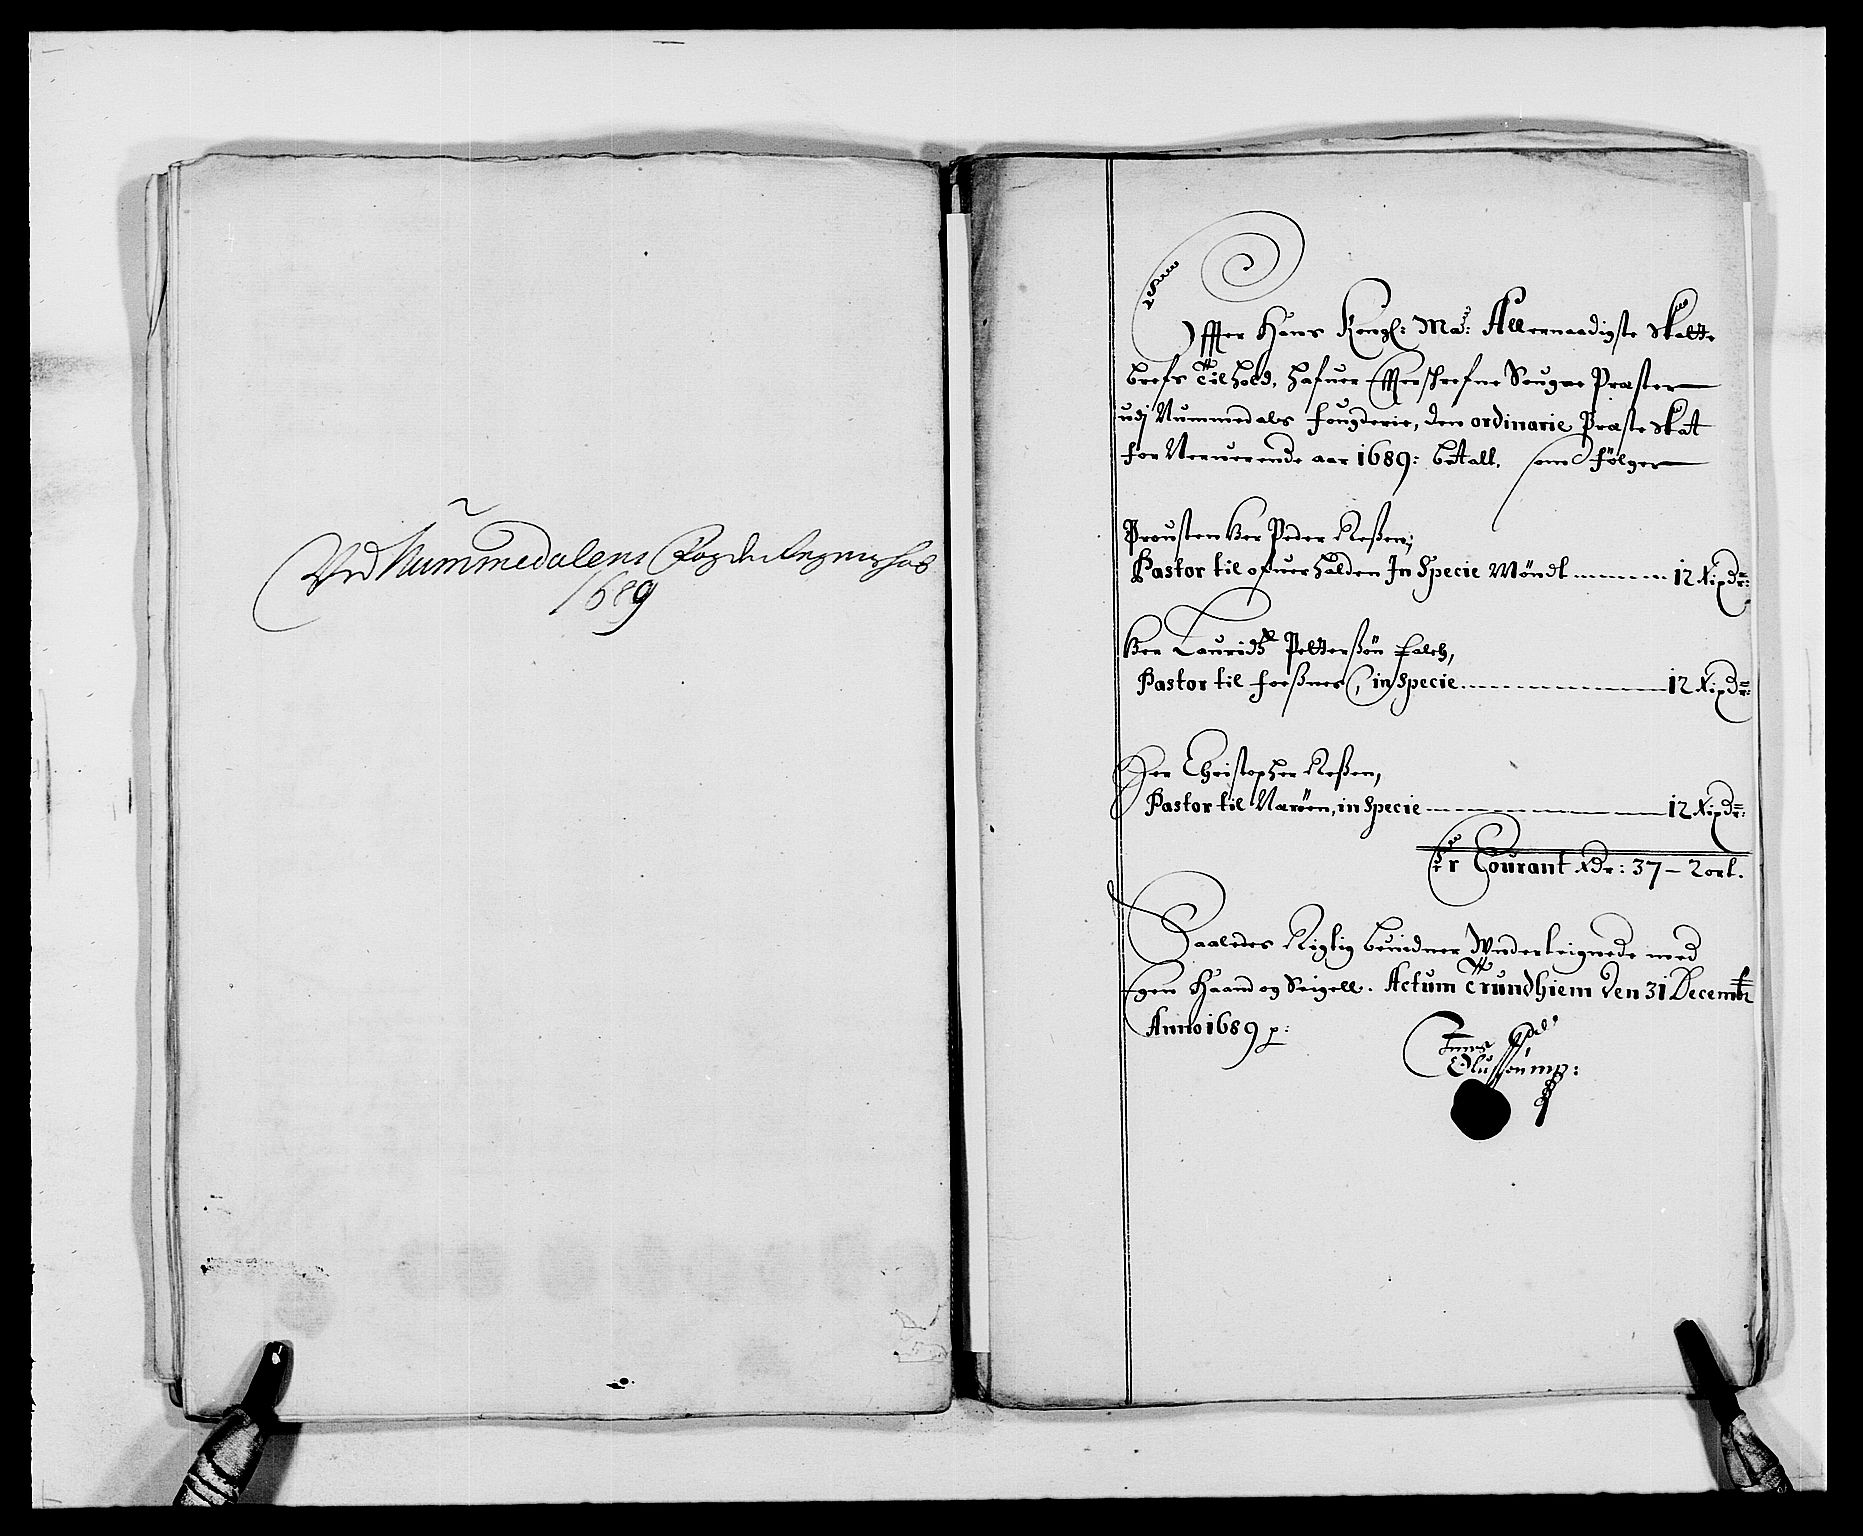 Ved Nummedalens Fogderie Regnschab
1689
Effter Hans Kongl: May: Allernaadigste Skatte
brefs Tilhold, hafuer Effterschrefne Sougne Præster
udj Nummedals fougderie, den ordinarie Præste Skatt
for Nerverende aar 1689: betalt, som følger
Prousten Her Peder Neßen;
Pastor til ofuerhalden In Specie Möndt 12 Rixdr:
Her Lauridtz Petterßön Falch,
Pastor til foeßnes, in Specie 12 Rixdr:
Her Christopher Neßen,
Pastor til Naröen, in Specie 12 Rixdr:
Er Courant Rdr: 37 – 2 ort.
Saaledes Rigtig beuidner Underteignede med
Egen Haand og Seigell. Actum Trundhiem den 31 Decembr
Anno 1689 p:
Olufsön mp: